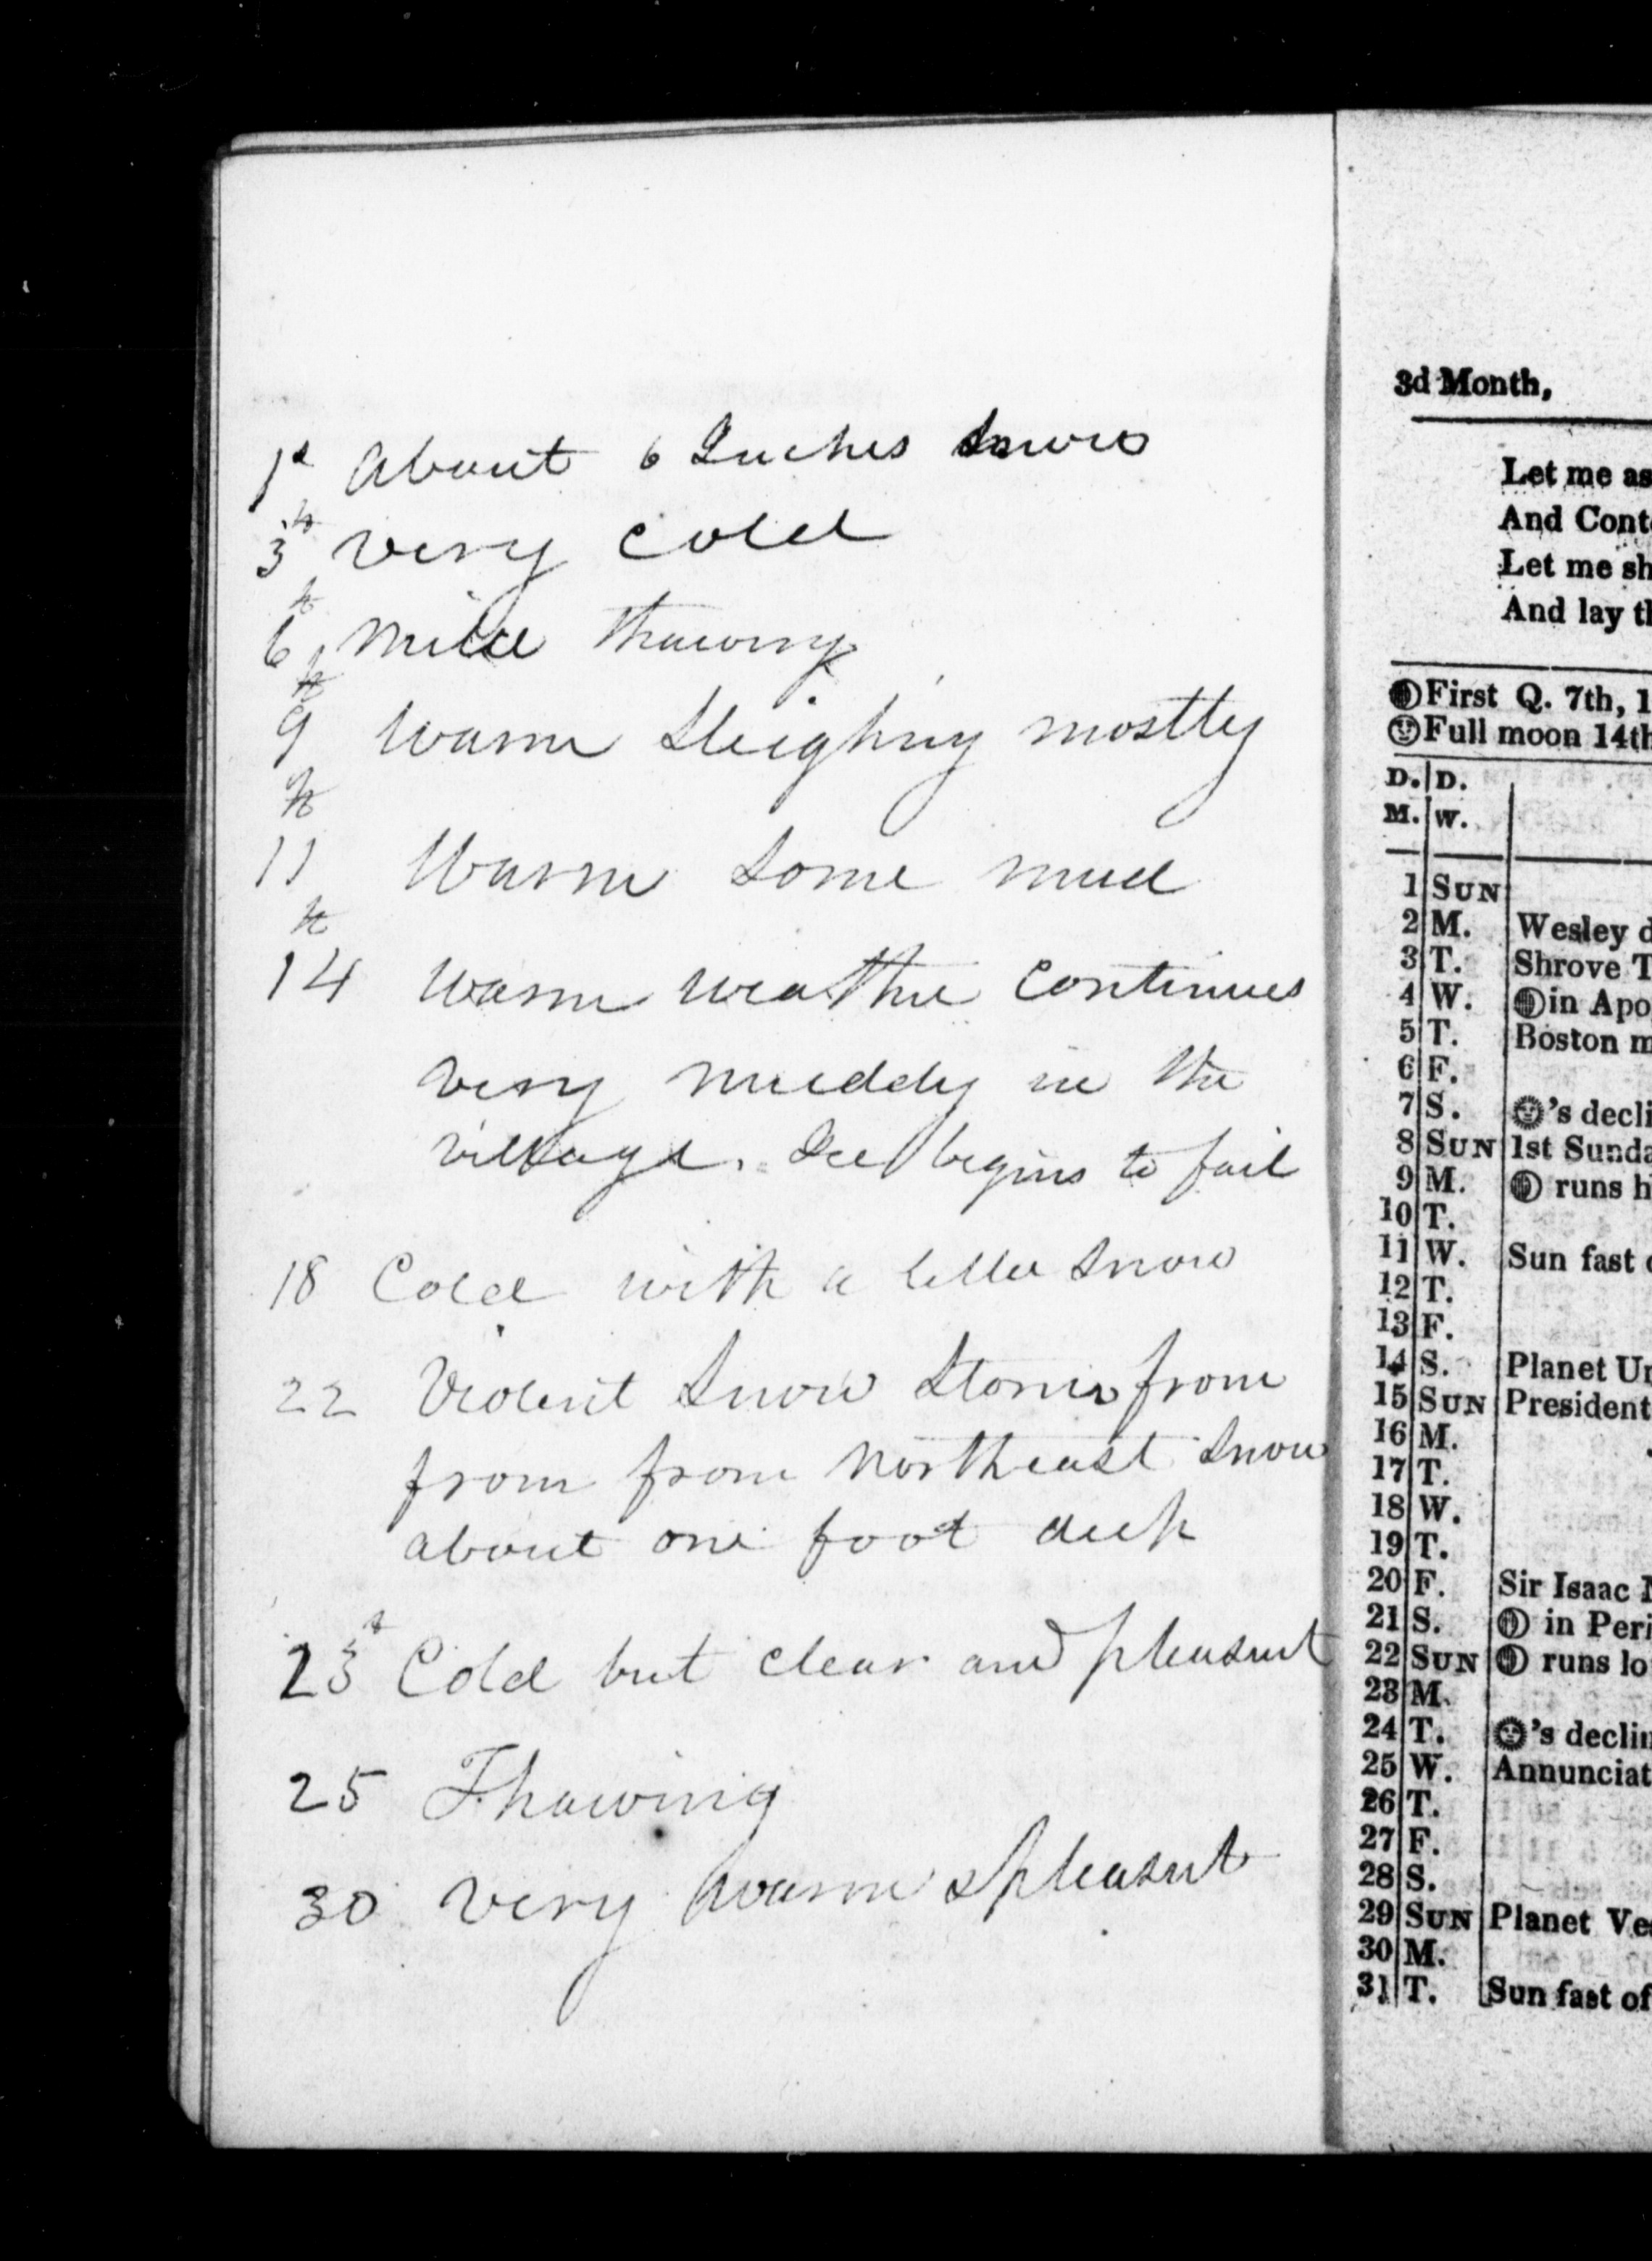 1st About 6 Inches Snow
3th very cold
6th mild thawing
9th Warm Sleighing mostly
11th Warm Some mud
14th Warm weather continues
very muddy in the
village. Ice begins to fail
18 Cold with a little Snow
22 Violent Snow Storm from
from from Northeast Snow
about one foot deep
23 Cold but clear and pleasant
25 Thawing
30 very warm & pleasant
3d Month,
Let me as
And Cont
Let me sh
And lay t
First Q. 7th, 1
Full moon 14th
D. D.
M. W.
1 SUN
2 M. Wesley d
3 T. Shrove T
4 W. in Apo
5 T. Boston m
6 F.
7 S. 's decli
8 SUN 1st Sunda
9 M. runs h
10 T.
11 W. Sun fast
12 T.
13 F.
14 S. Planet Ur
15 SUN President
16 M.
17 T.
18 W.
19 T.
20 F. Sir Isaac
21 S. in Peri
22 SUN runs lo
23 M.
24 T. 's declin
25 W. Annunciat
26 T.
27 F.
28 S.
29 SUN Planet Ves
30 M.
31 T. Sun fast of